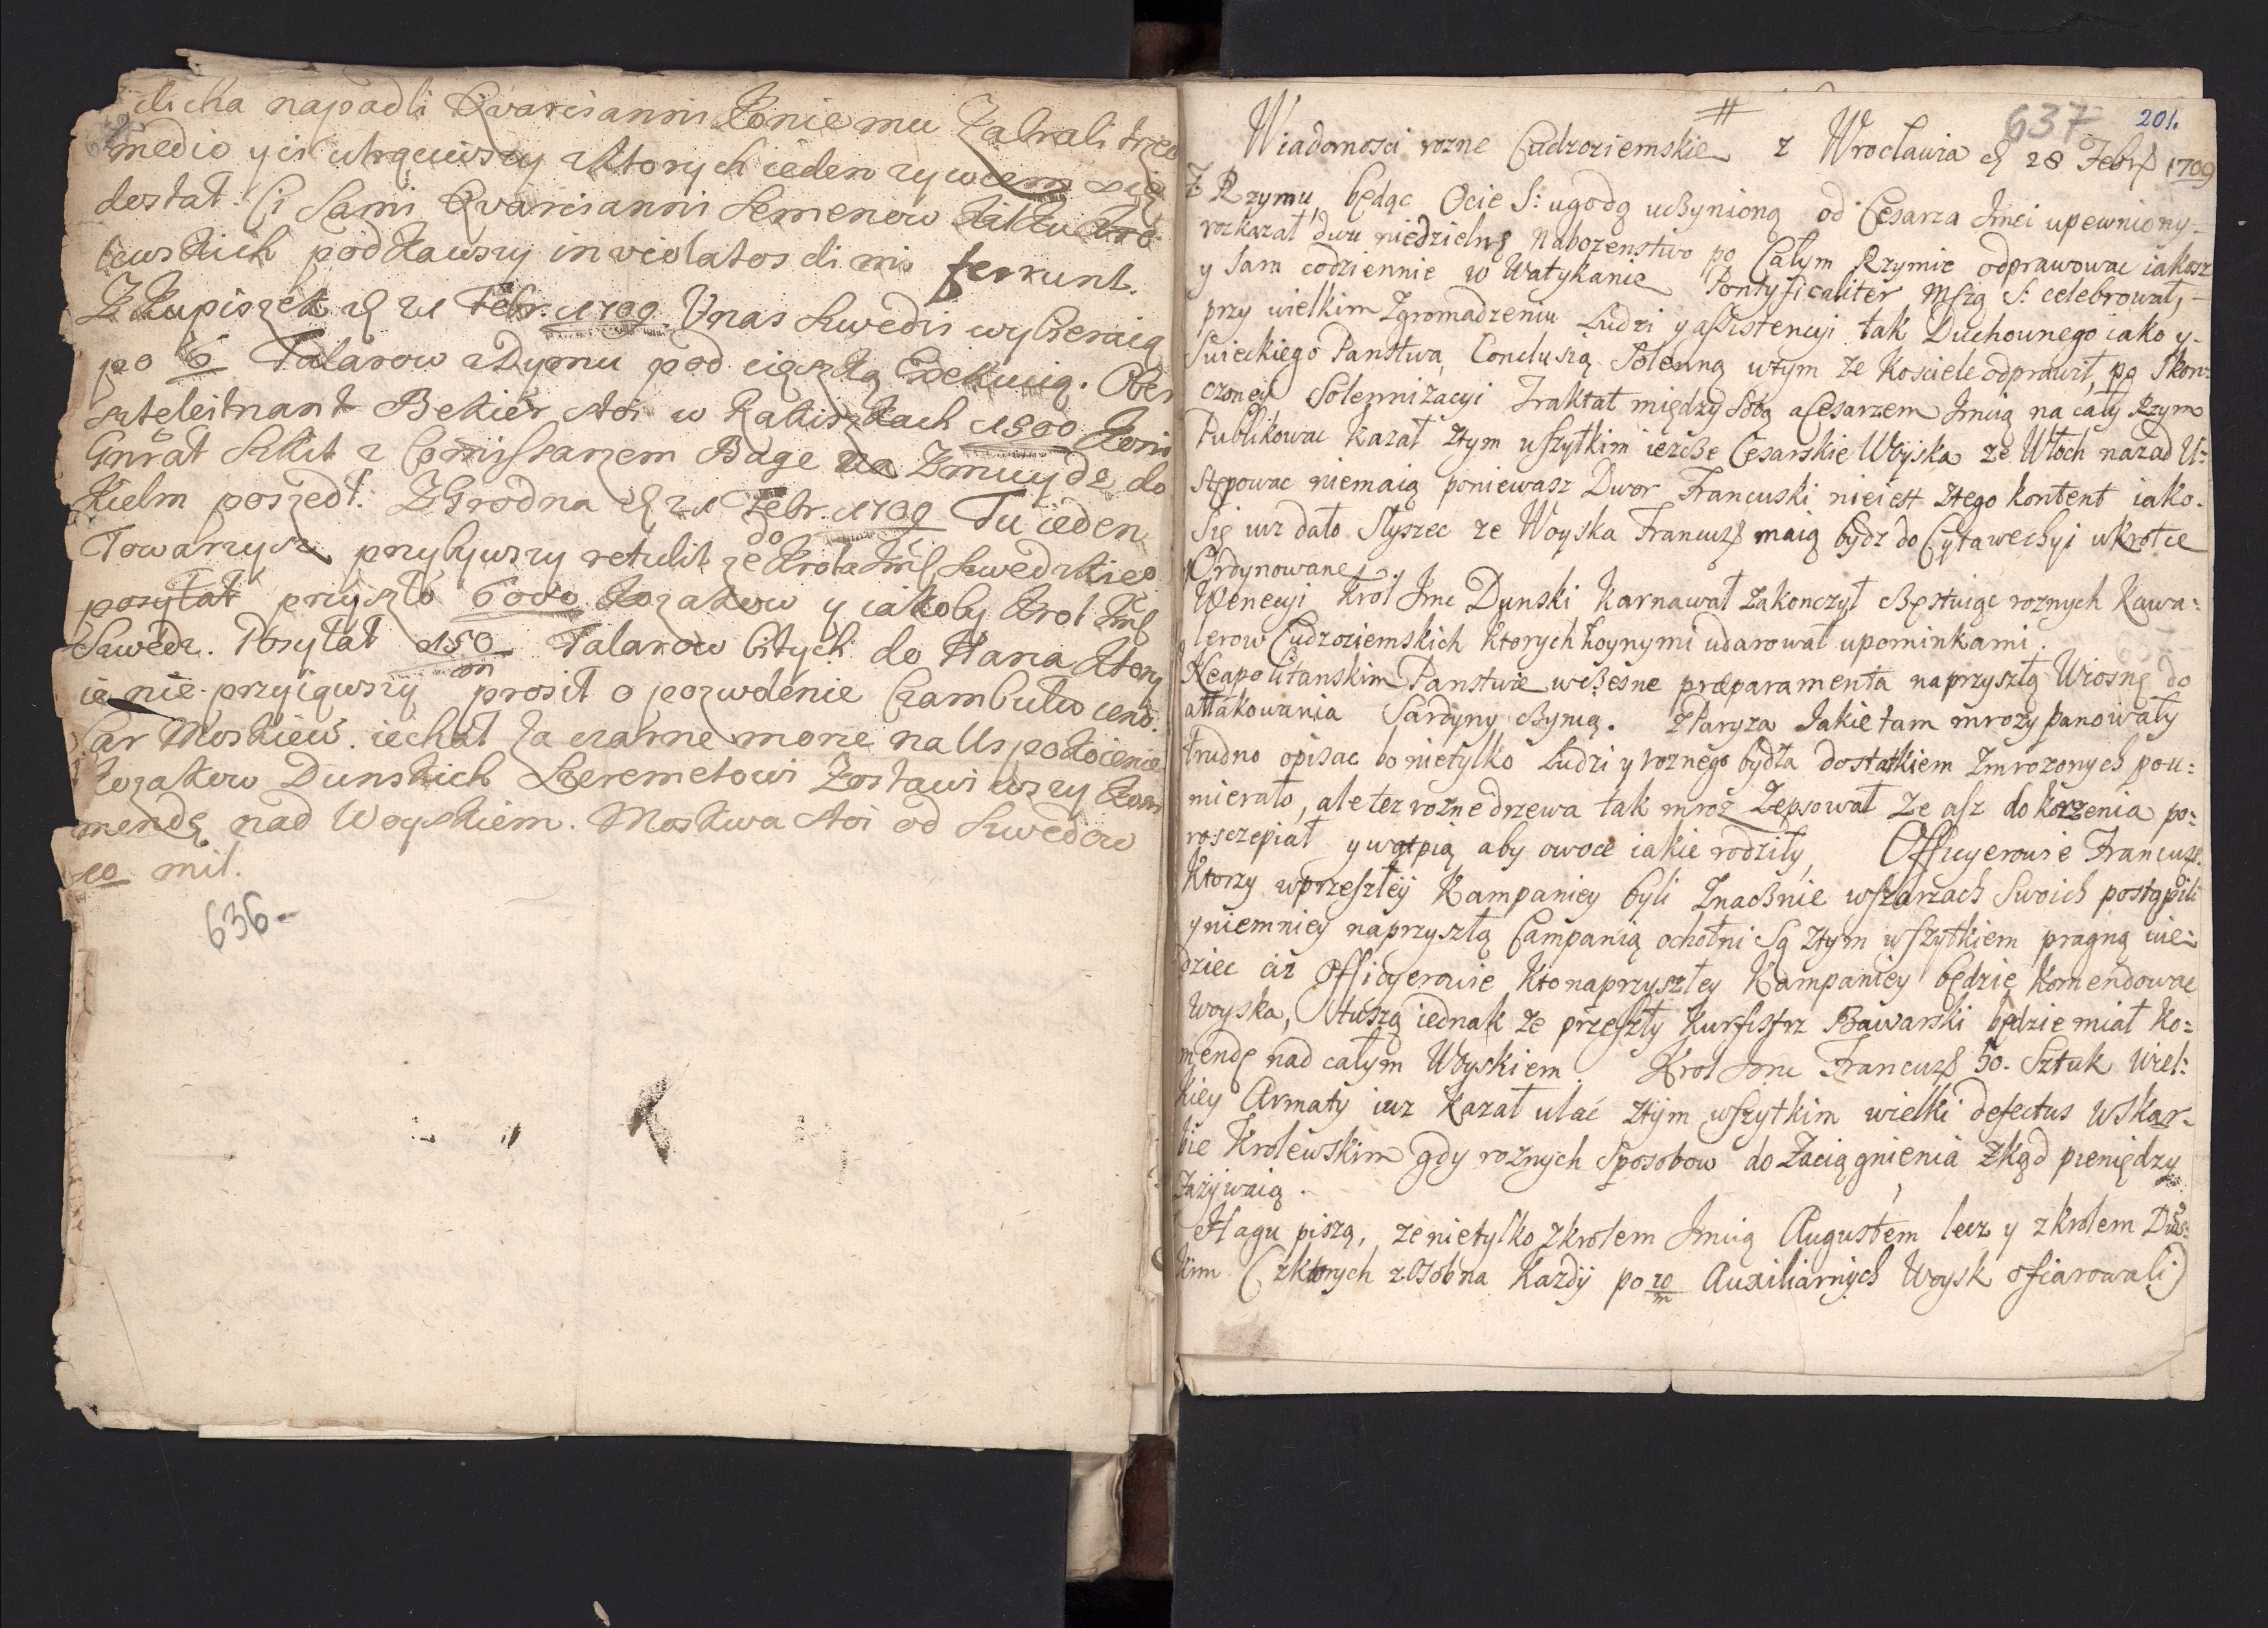 dicha napadli Qvarcianni Konie mu Zabrali trze
medio y ci utrąciwszy z Ktorych ieden zywcem się
dostał. Ci Sami Qvarcianni Semenow kilku Kro
lewskich podkawszy inviolatos dimiserunt.
Z Kupiszek d 21 Febr. 1709. Unas Szwedzi wybieraią
po 6 Talarow z Dymu pod cięszką Exekucią. Ober
szteleitnant Bekier stoi w Rakiszkach 1500 Koni
Gnrał Szkit z Comissarzem Bage na Zmuydz do
Kielm poszedł. Z Grodna d 21 Febr. 1709 Tu ieden
Towarzysz przybywszy retulit ze do Krola Jmsc Szwedzkieo
posyłał przyszło 6000 Kozakow y iakoby Krol Jmsc
Szwedz. Posyłał 150/m Talarow bitych do Hana Ktory
ie nie przyiąwszy prosił o pozwolenie Czambułu ieno.
Car Moskiew. iechał za czarne morze na Uspokoienie
Kozakow Dunskich Szeremetowi Zostawiwszy Kom
mendę nad Woyskiem. Moskwa stoi od Szwedow
10 mil.
636-
637 201.
Wiadomosci rozne Cudzoziemskie z Wrocławia d 28 Febr 1709
Z Rzymu, będąc Ocie S: ugodą uczynioną od Cesarza Jmci upewniony-
rozkazał dwu niedzielne Nabozenstwo po Całym Rzymie odprawowac iakosz
y Sam codziennie w Watykanie Pontyficaliter Mszą S: celebrował,-
przy wielkim Zgromadzeniu Ludzi y assistencyi tak Duchownego iako y-
Swieckiego Panstwa, Conclusią Solenną wtym ze Kosciele odprawił, po Skon-
czoney Solennizacyi Traktat między Sobą a Cesarzem Jmcią na cały Rzym
Publikowac kazał ztym wszytkim ieszcze Cesarskie Woyska ze Włoch nazad U-
stępowac niemaią poniewasz Dwor Francuski nieiest ztego kontent iako-
Się iuz dało Słyszec ze Woyska Francuz maią bydz do Cytawechyi wkrotce
Ordynowane.
Wenecyi Krol Jmc Dunski Karnawał zakonczył częstuiąc roznych Kawa-
lerow Cudzoziemskich Ktorych hoynymi udarował upominkami.
Neapolitanskim Panstwie wczesne præparamenta naprzyszłą Wiosnę do
attakowania Sardyny czynią. z Paryza Jakie tam mrozy panowały
trudno opisac bo nietylko Ludzi y roznego bydła dostatkiem Zmrozonych pou-
mierało, ale tez rozne drzewa tak mroz Zepsował ze asz do korzenia po-
rosczepiał y wątpią aby owoce iakie rodziły, Officyerowie Francuz.
Ktorzy wprzeszłey Kampaniey byli Znacznie wszarzach Swoich postąpili
y niemniey naprzyszłą Campanią ochotni Są ztym wszytkiem pragną wie-
dziec ciz Officyerowie Kto naprzyszłey Kampaniey będzie Komendowac
Woyska, tuszą iednak ze przeszły Kurfistrz Bawarski będzie miał Ko-
mendę nad całym Woyskiem. Krol Jmc Francuz 50. Sztuk Wiel-
kiey Armaty iuz Kazał ulać ztym wszytkim wielki defectus w Skar-
bie Krolewskim gdy roznych Sposobow do Zaciągnienia zkąd pieniędzy
zazywaią.
Hagu piszą, ze nietylko z krolem Jmcią Augustem lecz y z krolem Duns-
kim (z ktorych zosobna Kazdy po 10/m Auxiliarnych Woysk ofiarowali)